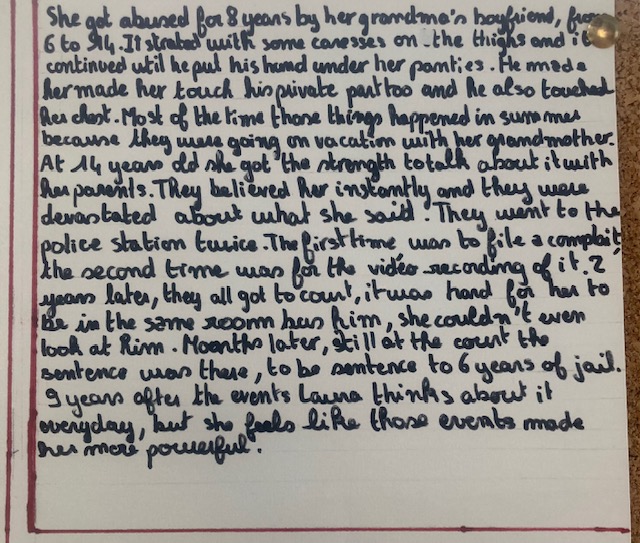 She got abused for 8 years by her grandma's boyfriend, from
6 to 14. It strated with some caresses on the thighs and it
continued util he put his hand under her panties. He made
her made her touch his private part too and he also touched
her chest. Most of the time those things happened in summer
because they were going on vacation with her grandmother.
At 14 years old she got the strength to talk about it with
her parents. They believed her instantly and they were
devastated about what she said. They went to the
police station twice. The first time was to file a complait,
the second time was for the vidéo recording of it. 2
years later, they all got to court, it was hard for her to
be in the same room has him, she couldn't even
look at him. Moonths later, still at the court the
sentence was there, to be sentence to 6 years of jail.
9 years after the events Laura thinks about it
everyday, but she feels like those events made
her more powerful.